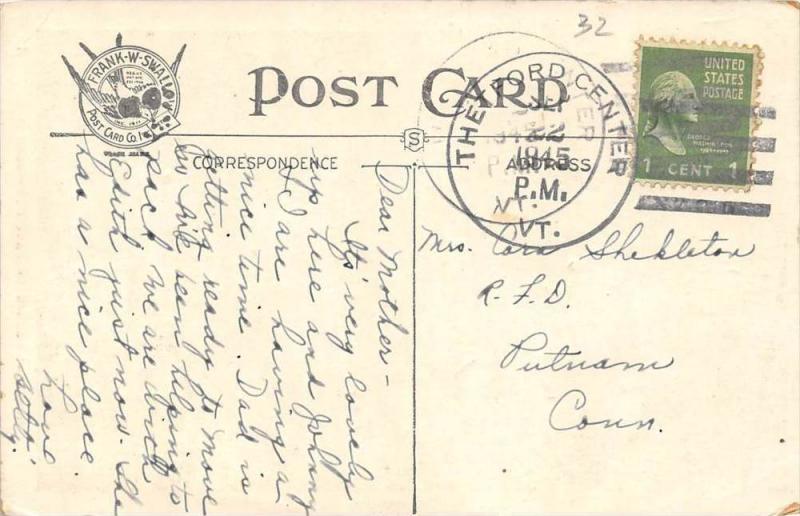 32
FRANK-W-SWALLOW
POST CARD Co. Inc.
TRADE MARK
POST CARD
CORRESPONDENCE
S
ADDRESS
THETFORD CENTER
22
1945
P.M.
VT.
UNITED
STATES
POSTAGE
GEORGE
WASHINGTON
1 CENT 1
Dear Mother -
It's very lovely
up here and Johnny
& I are having a
nice time. Dad is
getting ready to move
so we've been helping to
pack. We are with
Edith just now. She
has a nice place.
Love
Betty.
Mrs. Cora Shekleton
R.F.D.
Putnam
Conn.